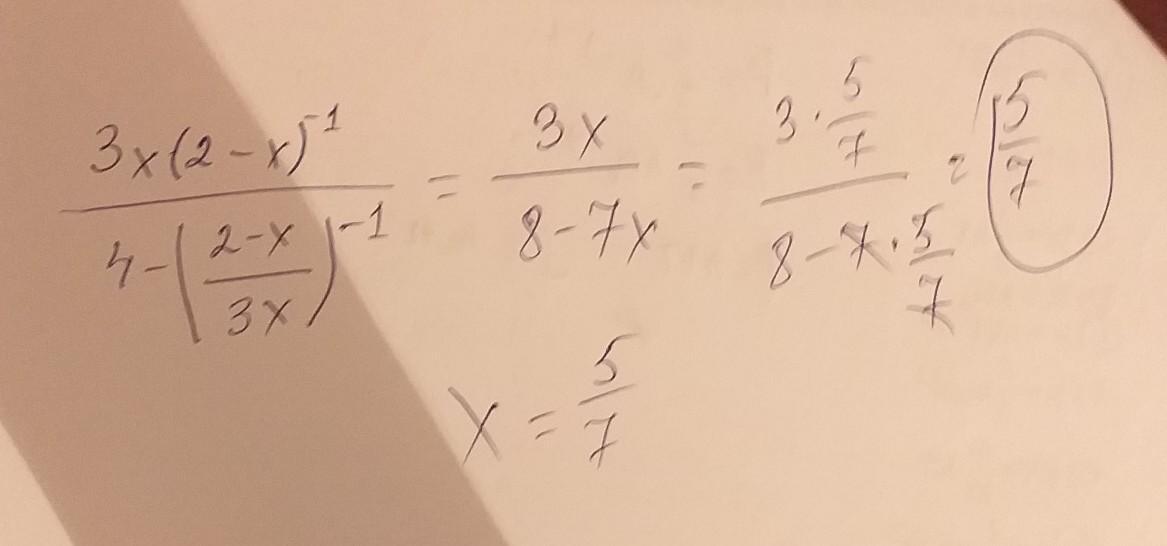 \frac{3x(2-x)^{-1}}{4-\left(\frac{2-x}{3x}\right)^{-1}} = \frac{3x}{8-7x} = \frac{3 \cdot \frac{5}{7}}{8-7 \cdot \frac{5}{7}} = \frac{5}{7}
x = \frac{5}{7}